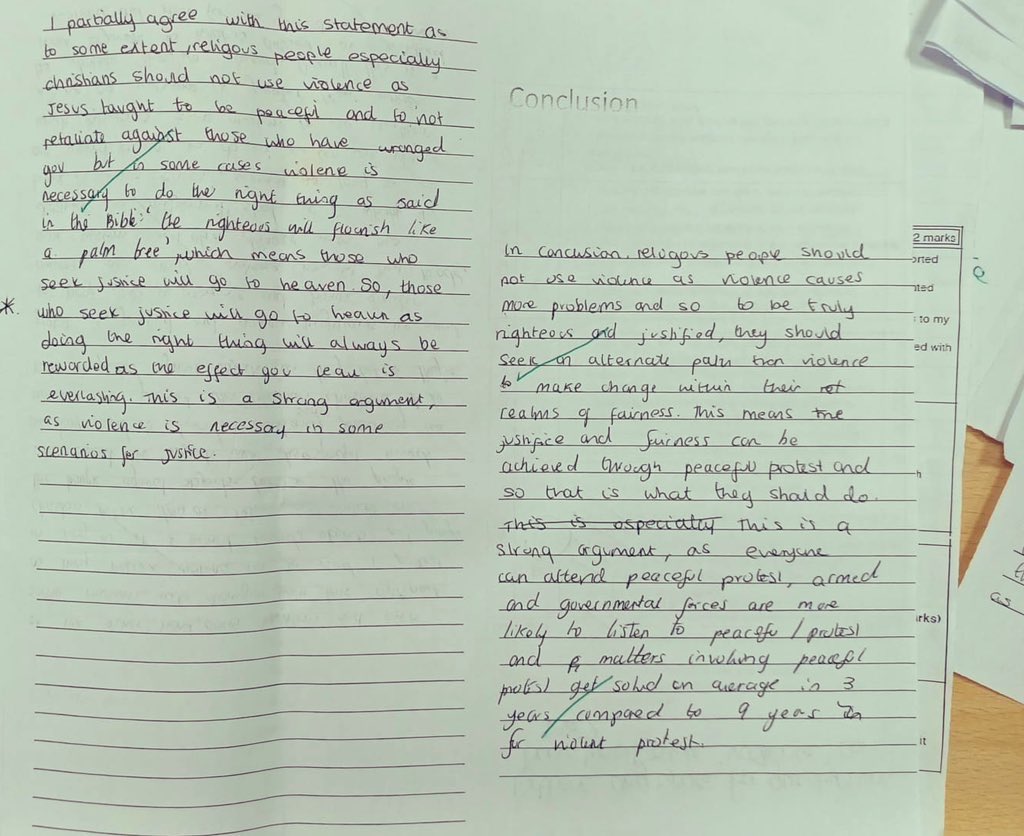 I partially agree with this statement as
to some extent, religous people especially
christians should not use violence as
Jesus taught to be peacefl and to not
retaliate against those who have wronged
you but in some cases violene is
necessary to do the right thing as said
in the Bible: 'the righteous will flourish like
a palm tree', which means those who
seek justice will go to heaven. So, those
*. who seek justice will go to heaven as
doing the right thing will always be
rewarded as the effect you leave is
everlasting. This is a strong argument,
as violence is necessary in some
scenarios for justice.
Conclusion
In conclusion, religous people should
not use violence as violence causes
more problems and so to be truly
righteous and justified, they should
seek an alternate path than violence
to make change within their
realms of fairness. This means the
justifice and fairness can be
achieved through peaceful protest and
so that is what they should do.
This is especially This is a
strong argument, as everyone
can attend peaceful protest, armed
and governmental forces are more
likely to listen to peaceful protest
and matters involving peacefl
protest get solved on average in 3
years compared to 9 years
for violent protest.
2 marks]
orted
ated
s to my
ed with
h
rks)
it
as